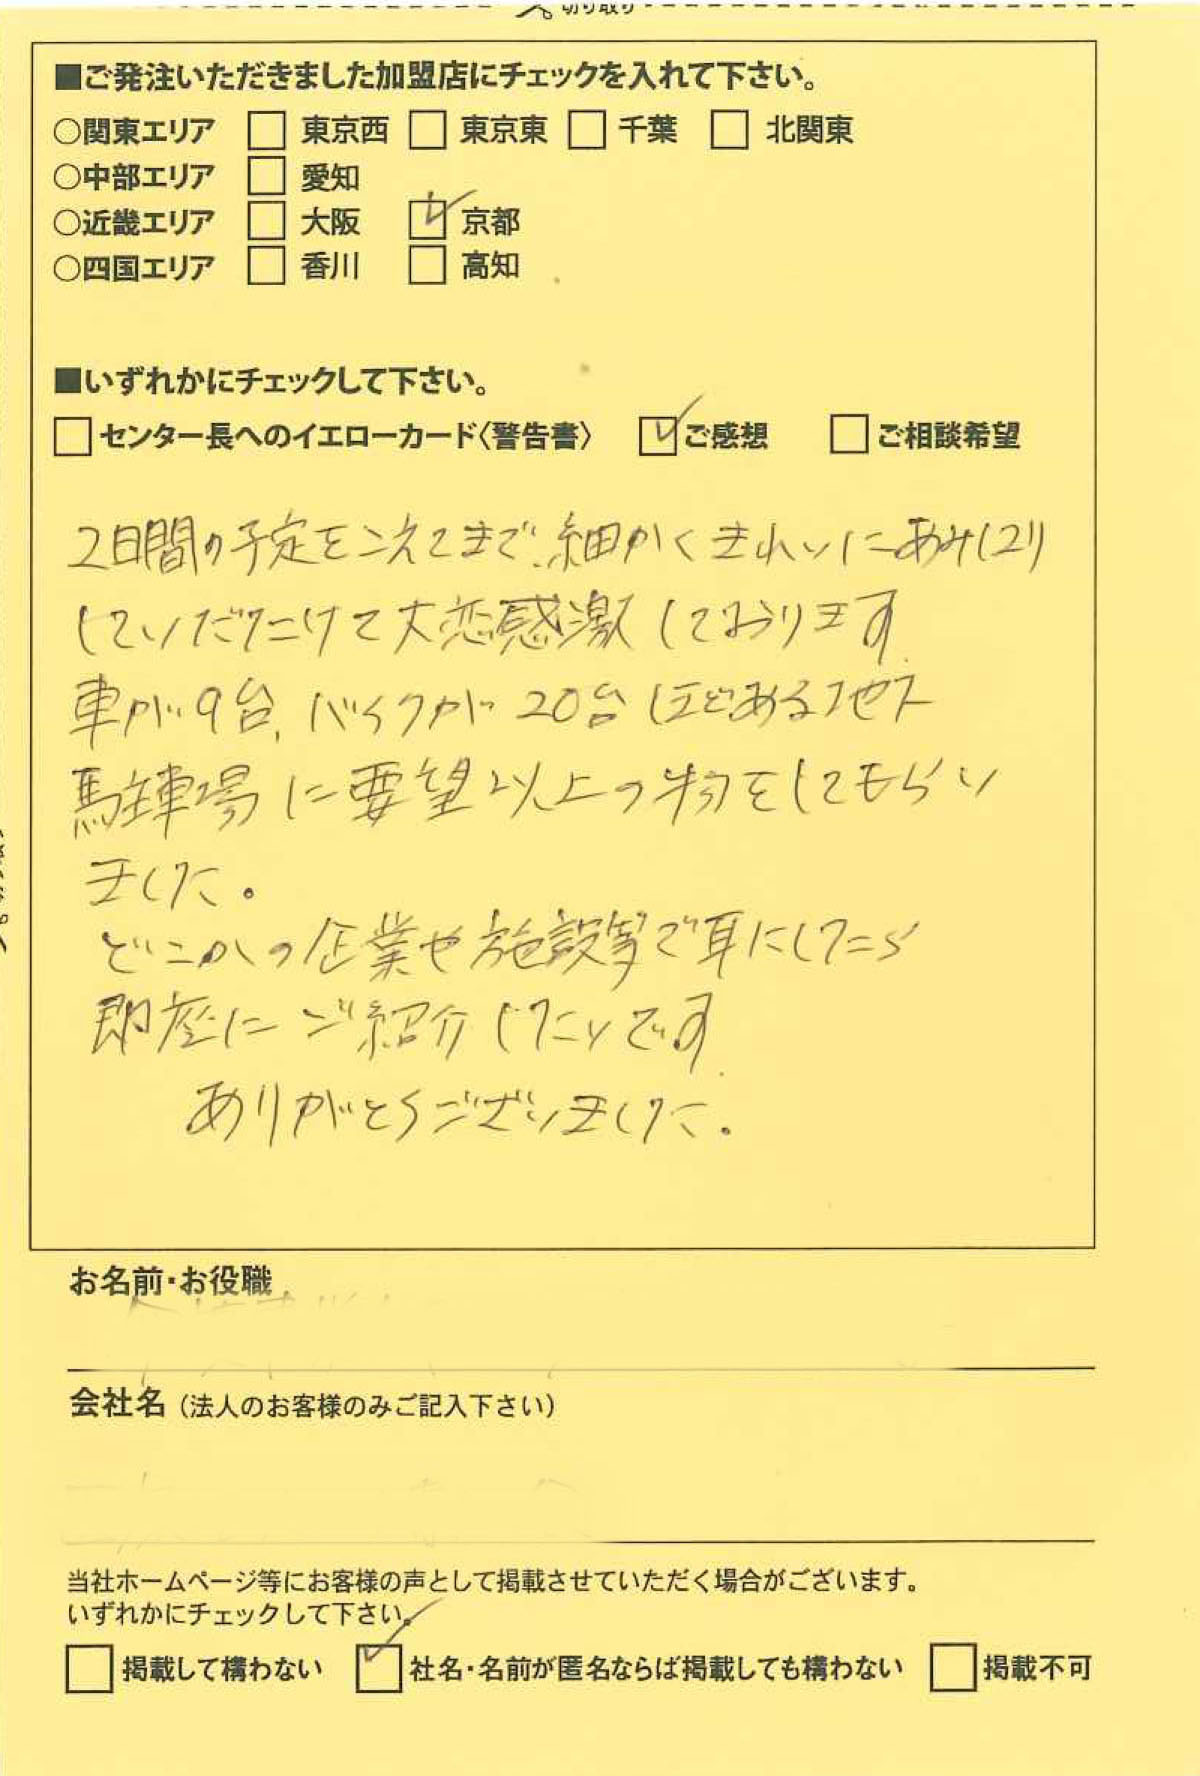 切り取り
■ご発注いただきました加盟店にチェックを入れて下さい。
○関東エリア □ 東京西 □ 東京東 □ 千葉 □ 北関東
○中部エリア □ 愛知
○近畿エリア □ 大阪 ☑ 京都
○四国エリア □ 香川 □ 高知
■いずれかにチェックして下さい。
□ センター長へのイエローカード〈警告書〉 ☑ ご感想 □ ご相談希望
2日間の予定をこえてまで、細かくきれいにあみはり
していただけて大変感激しております。
車が9台、バイクが20台ほどある地下
駐車場に要望以上の物をしてもらい
ました。
どこかの企業や施設等で耳にしたら
即座にご紹介したいです。
ありがとうございました。
お名前・お役職
会社名（法人のお客様のみご記入下さい）
当社ホームページ等にお客様の声として掲載させていただく場合がございます。
いずれかにチェックして下さい。
□ 掲載して構わない ☑ 社名・名前が匿名ならば掲載しても構わない □ 掲載不可